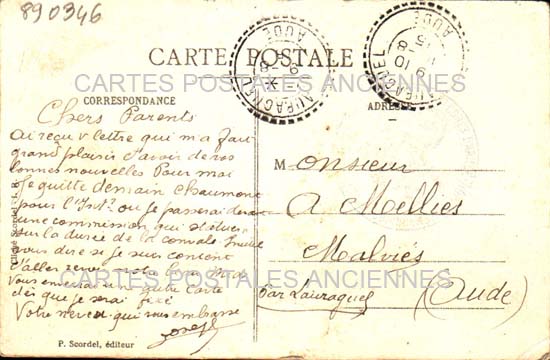 890346
CARTE POSTALE
AUDE
AUDE
CARTES POSTALES ANCIENNES
CORRESPONDANCE
ADRESSE
Chers Parents
Ai reçu v lettre qui m'a fait
grand plaisir d'avoir de vos
bonnes nouvelles Pour moi
je quitte demain Chaumont
pour l'
ou je passerai devant
une commission qui statuera
sur la durée de la convale
vous dire se je suis content
d'aller revoir
Vous enverrai une autre Carte
dès que je serai fixé
Votre neveu qui vous embrasse
Joseph
Monsieur
A Moellies
Malviés
par Lauraguel (Aude)
CARTES POSTALES ANCIENNES
Cliché Scordel
P. Scordel, éditeur